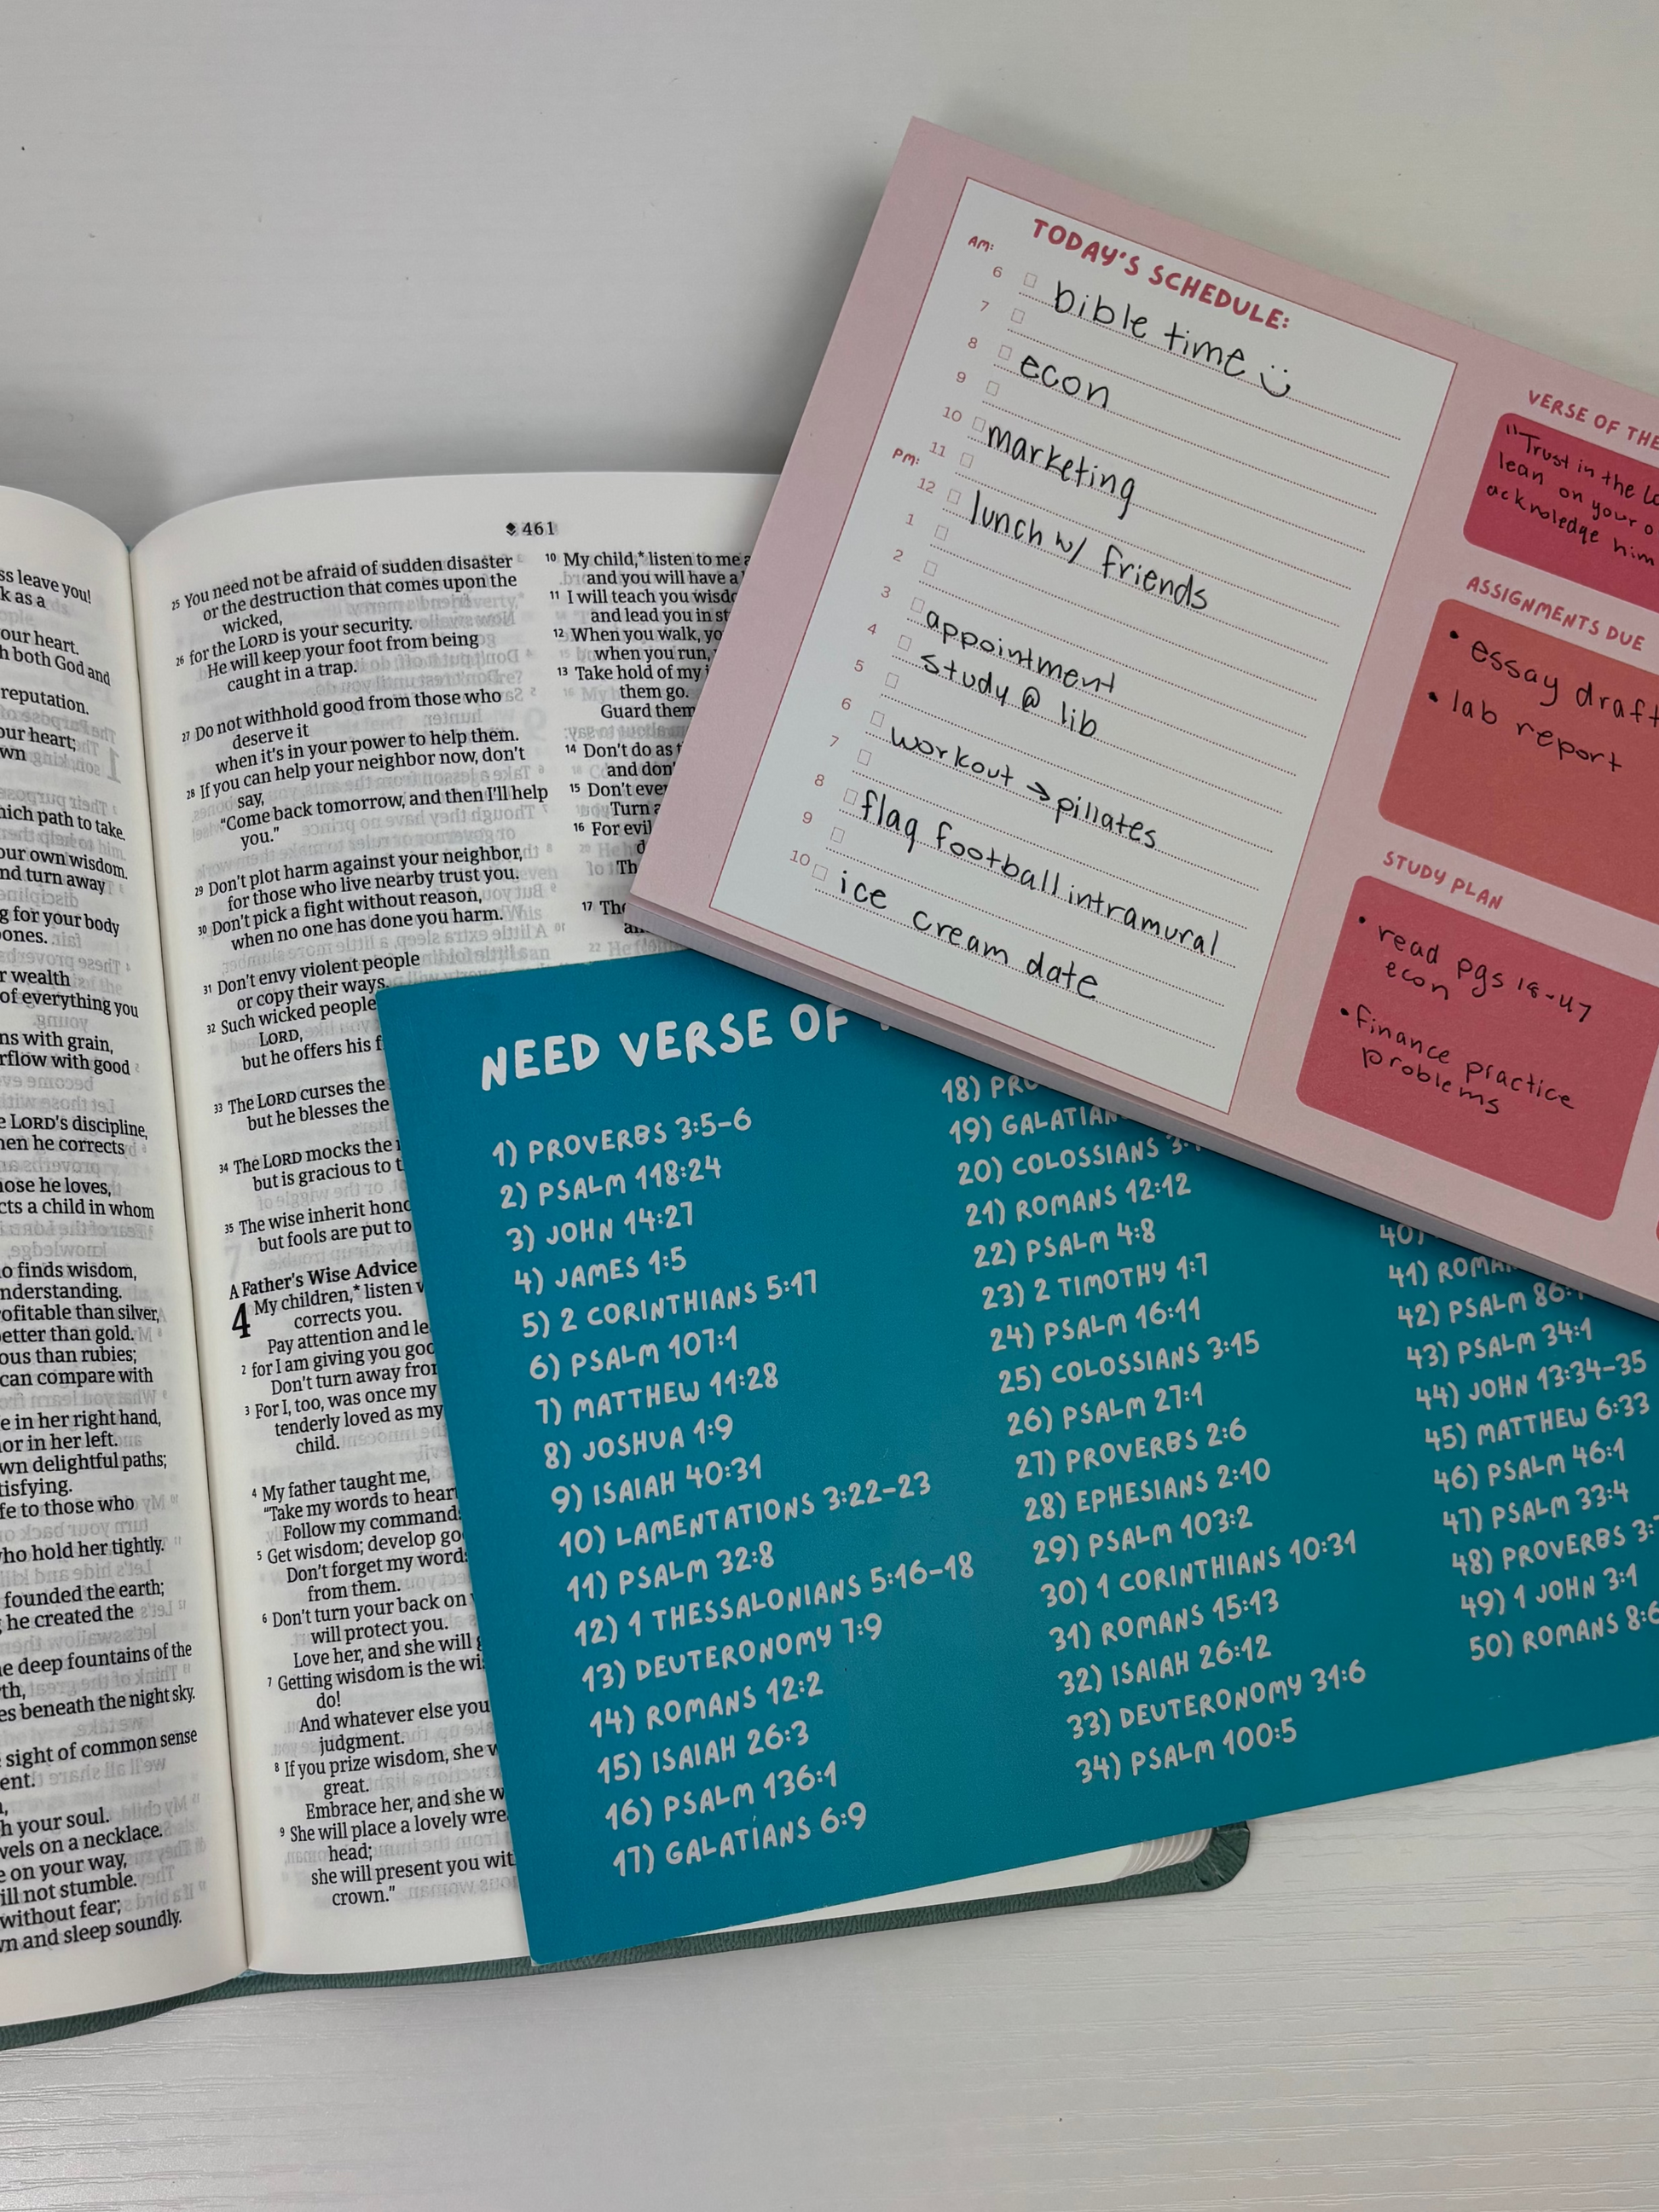 TODAY'S SCHEDULE:
AM:
6 bible time
7
8 econ
9
10 marketing
11
PM:
12 lunch w/ friends
1
2
3 appointment
4 study @ lib
5
6 workout → pillates
7
8 flag football intramural
9
10 ice cream date
VERSE OF THE
"Trust in the
lean on your
acknoledge him
ASSIGNMENTS DUE
• essay draft
• lab report
STUDY PLAN
• read pgs 18-47
econ
• finance practice
problems
NEED VERSE OF
1) PROVERBS 3:5-6
2) PSALM 118:24
3) JOHN 14:27
4) JAMES 1:5
5) 2 CORINTHIANS 5:17
6) PSALM 107:1
7) MATTHEW 11:28
8) JOSHUA 1:9
9) ISAIAH 40:31
10) LAMENTATIONS 3:22-23
11) PSALM 32:8
12) 1 THESSALONIANS 5:16-18
13) DEUTERONOMY 7:9
14) ROMANS 12:2
15) ISAIAH 26:3
16) PSALM 136:1
17) GALATIANS 6:9
18)
19)
20) COLOSSIANS
21) ROMANS 12:12
22) PSALM 4:8
23) 2 TIMOTHY 1:7
24) PSALM 16:11
25) COLOSSIANS 3:15
26) PSALM 27:1
27) PROVERBS 2:6
28) EPHESIANS 2:10
29) PSALM 103:2
30) 1 CORINTHIANS 10:31
31) ROMANS 15:13
32) ISAIAH 26:12
33) DEUTERONOMY 31:6
34) PSALM 100:5
40)
41)
42) PSALM
43) PSALM 34:1
44) JOHN 13:34-35
45) MATTHEW 6:33
46) PSALM 46:1
47) PSALM 33:4
48) PROVERBS
49) 1 JOHN 3:1
50) ROMANS
leave you!
as a
our heart.
both God and
reputation.
our heart;
path to take.
our own wisdom.
turn away
for your body
wealth
of everything you
with grain,
with good
LORD's discipline,
he corrects
he loves,
a child in whom
finds wisdom,
than silver,
than gold.
than rubies;
can compare with
in her right hand,
in her left.
delightful paths;
to those who
hold her tightly.
founded the earth;
he created the
deep fountains of the
beneath the night sky.
sight of common sense
your soul.
on a necklace.
on your way,
not stumble.
without fear;
and sleep soundly.
461
25 You need not be afraid of sudden disaster
or the destruction that comes upon the
wicked,
26 for the LORD is your security.
He will keep your foot from being
caught in a trap.
27 Do not withhold good from those who
deserve it
when it's in your power to help them.
28 If you can help your neighbor now, don't
say,
"Come back tomorrow, and then I'll help
you."
29 Don't plot harm against your neighbor,
for those who live nearby trust you.
30 Don't pick a fight without reason,
when no one has done you harm.
31 Don't envy violent people
or copy their ways.
32 Such wicked people
LORD,
but he offers his
33 The LORD curses the
but he blesses the
34 The LORD mocks the
but is gracious to
35 The wise inherit
but fools are put to
A Father's Wise Advice
4 My children,* listen
corrects you.
Pay attention and
2 for I am giving you
Don't turn away
3 For I, too, was once my
tenderly loved as my
child.
4 My father taught me,
"Take my words to
Follow my
5 Get wisdom; develop
Don't forget my
from them.
6 Don't turn your back on
will protect you.
Love her, and she will
7 Getting wisdom is the
do!
And whatever else you
judgment.
8 If you prize wisdom, she
great.
Embrace her, and she
9 She will place a lovely
head;
she will present you
crown."
10 My child,* listen to me
and you will have a
11 I will teach you
and lead you in
12 When you walk,
when you run,
13 Take hold of my
them go.
Guard
14 Don't do as
and
15 Don't
Turn
16 For evil
17